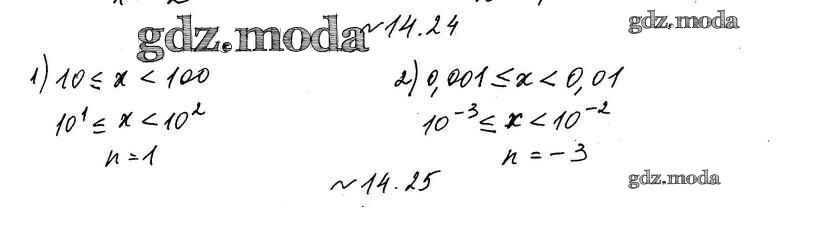 gdz.moda
№14.24
gdz.moda
1) 10 ≤ x < 100
2) 0,001 ≤ x < 0,01
10¹ ≤ x < 10²
10⁻³ ≤ x < 10⁻²
n = 1
n = -3
№14.25
gdz.moda